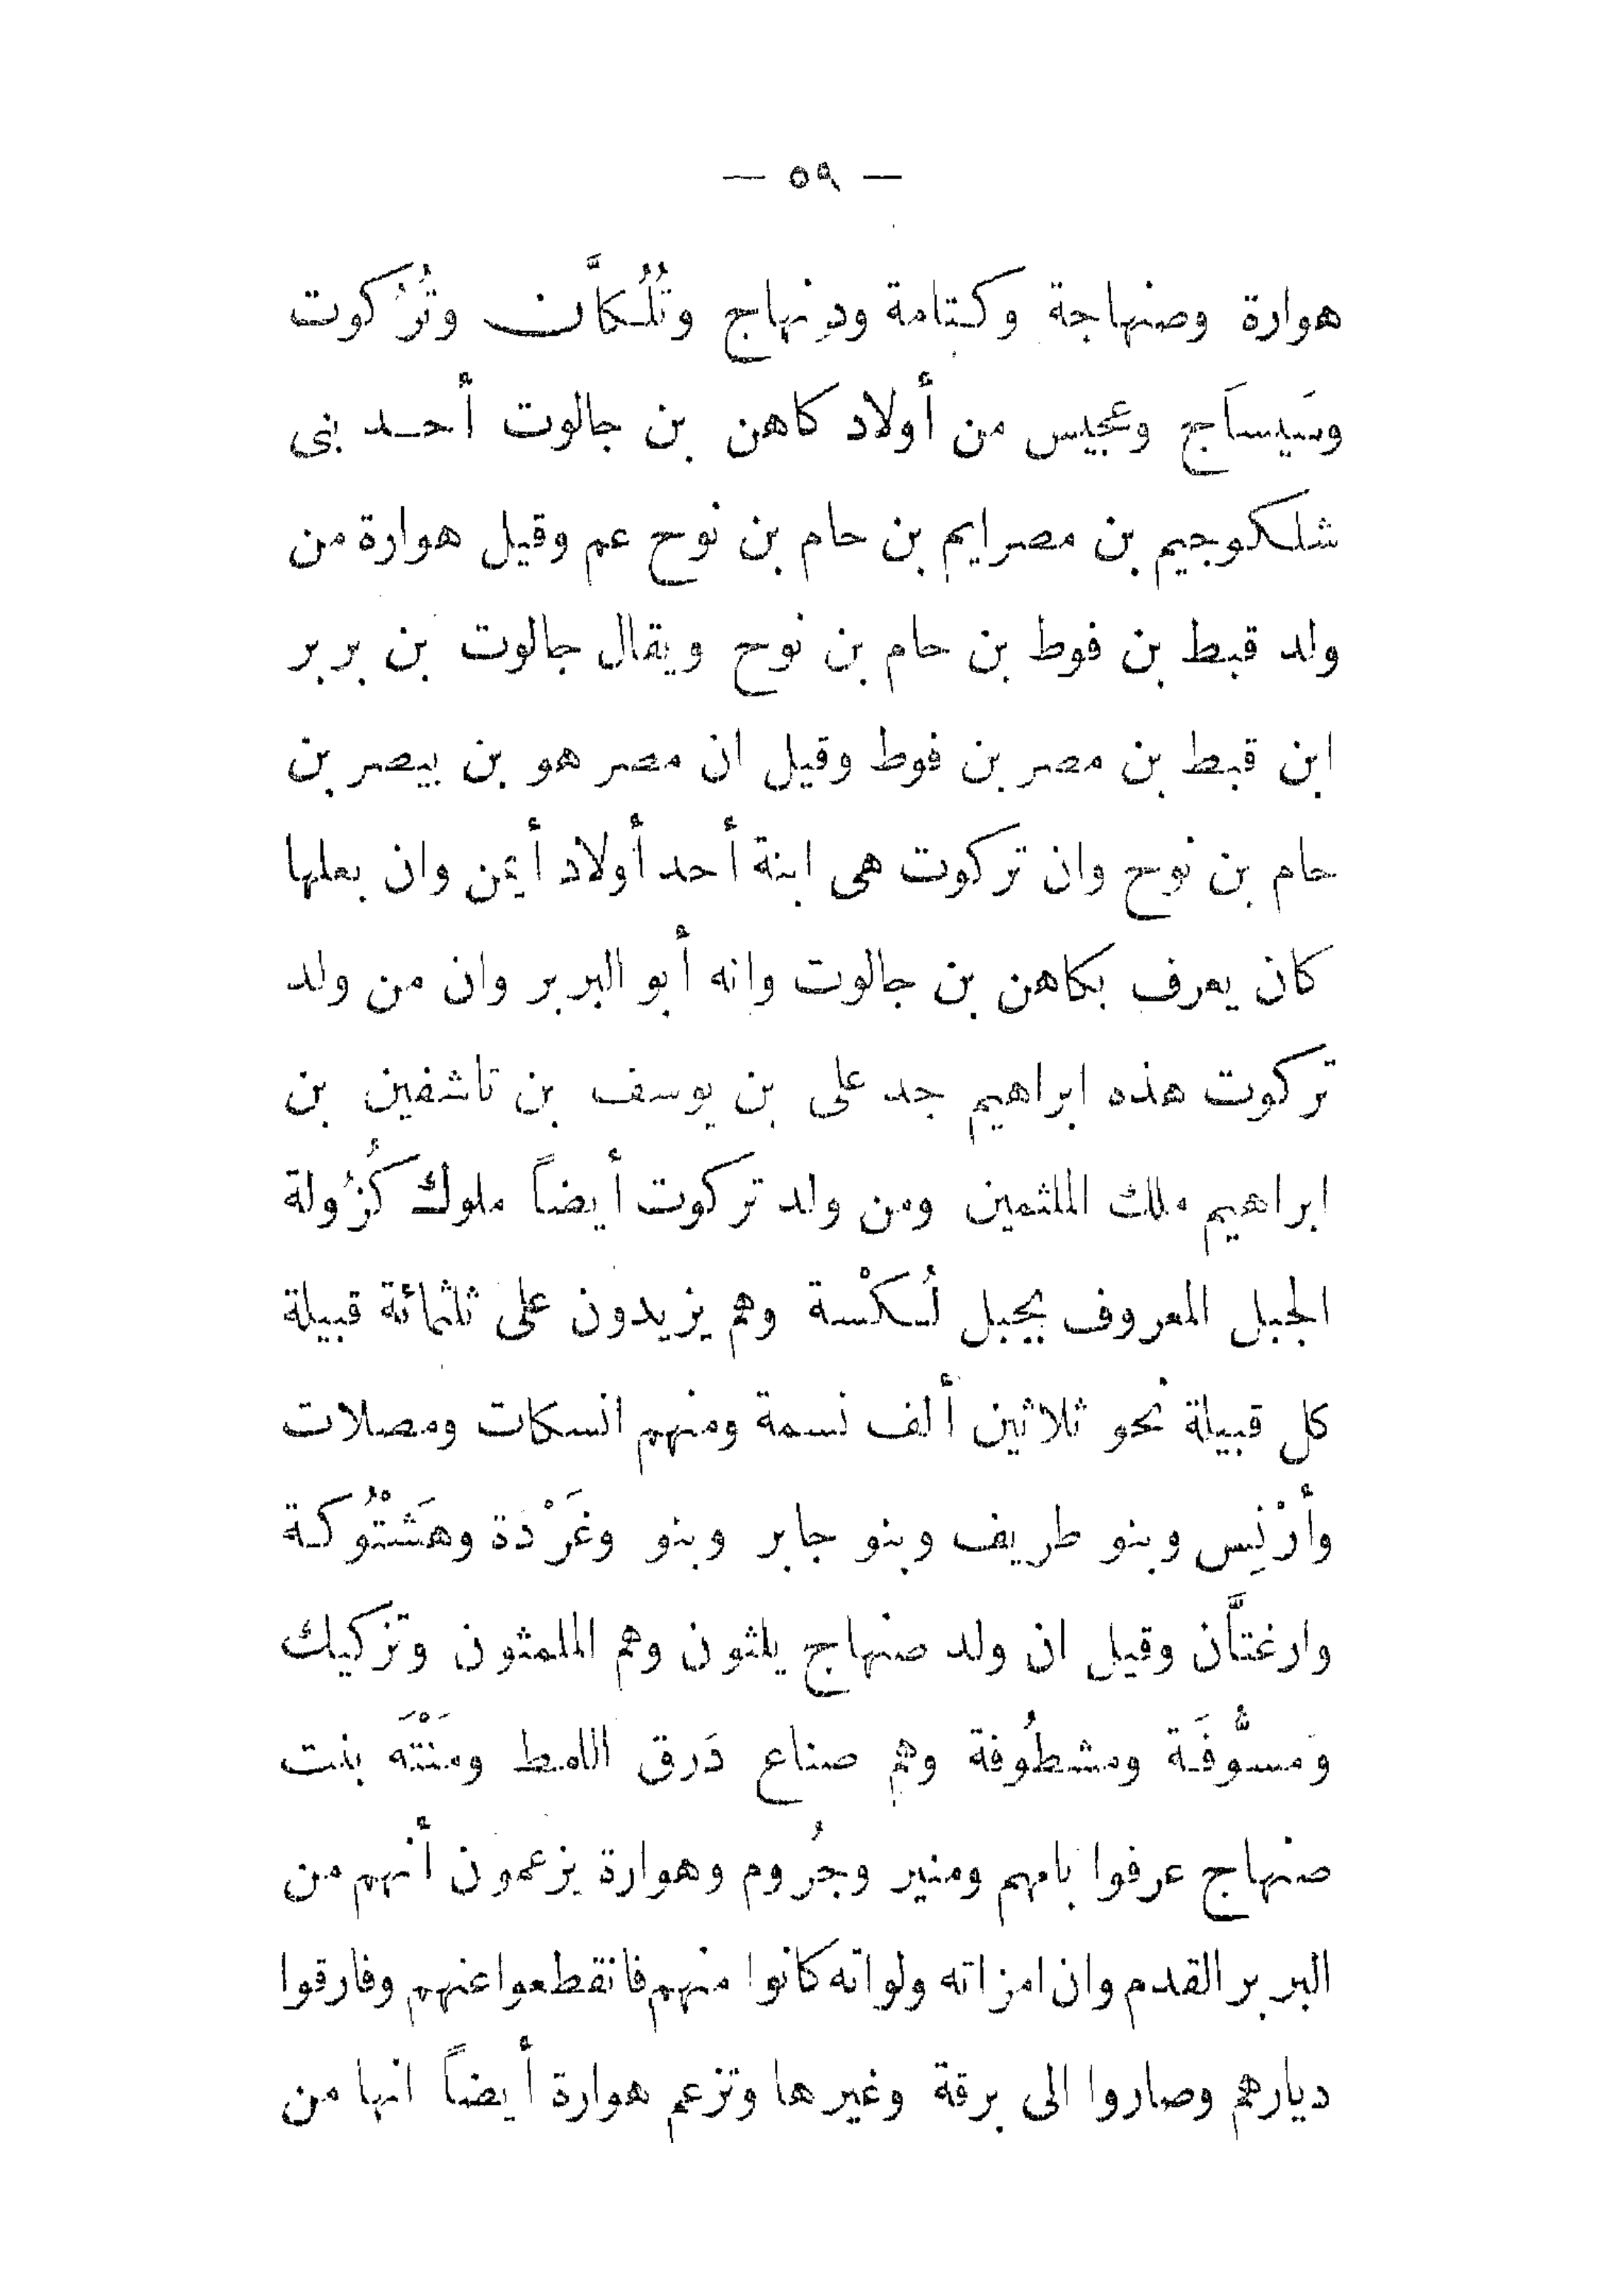 — ٥٩ —
هوارة وصنهاجة وكتامة ودِنهاج وتُلُكَّان وتُرْكوت
وسَيسَاج وعجيس من أولاد كاهن بن جالوت أحد بنى
شلكوجيم بن مصرايم بن حام بن نوح عم وقيل هوارة من
ولد قبط بن فوط بن حام بن نوح ويقال جالوت بن بربر
ابن قبط بن مصر بن فوط وقيل ان مصر هو بن بيصر بن
حام بن نوح وان تركوت هى ابنة أحد أولاد أيمن وان بعلها
كان يعرف بكاهن بن جالوت وانه أبو البربر وان من ولد
تركوت هذه ابراهيم جد على بن يوسف بن تاشفين بن
ابراهيم ملك الملثمين ومن ولد تركوت أيضاً ملوك كُزْولة
الجبل المعروف بجبل لُسكْسة وهم يزيدون على ثلثمائة قبيلة
كل قبيلة نحو ثلاثين ألف نسمة ومنهم انسكات ومصلات
وأرْنِيس وبنو طريف وبنو جابر وبنو وغَرْدة وهَشْتُوكة
وارغتَّان وقيل ان ولد صنهاج يلثون وهم الملمثون وتزكيك
وَمسُّوفَة ومشطُوفة وهم صناع دَرق اللامط ومَنْتَه بنت
صنهاج عرفوا بامهم ومنير وجُروم وهوارة يزعمون أنهم من
البربر القدم وان امزاته ولواته كانوا منهم فانقطعوا عنهم وفارقوا
ديارهم وصاروا الى برقة وغيرها وتزعم هوارة أيضاً انها من